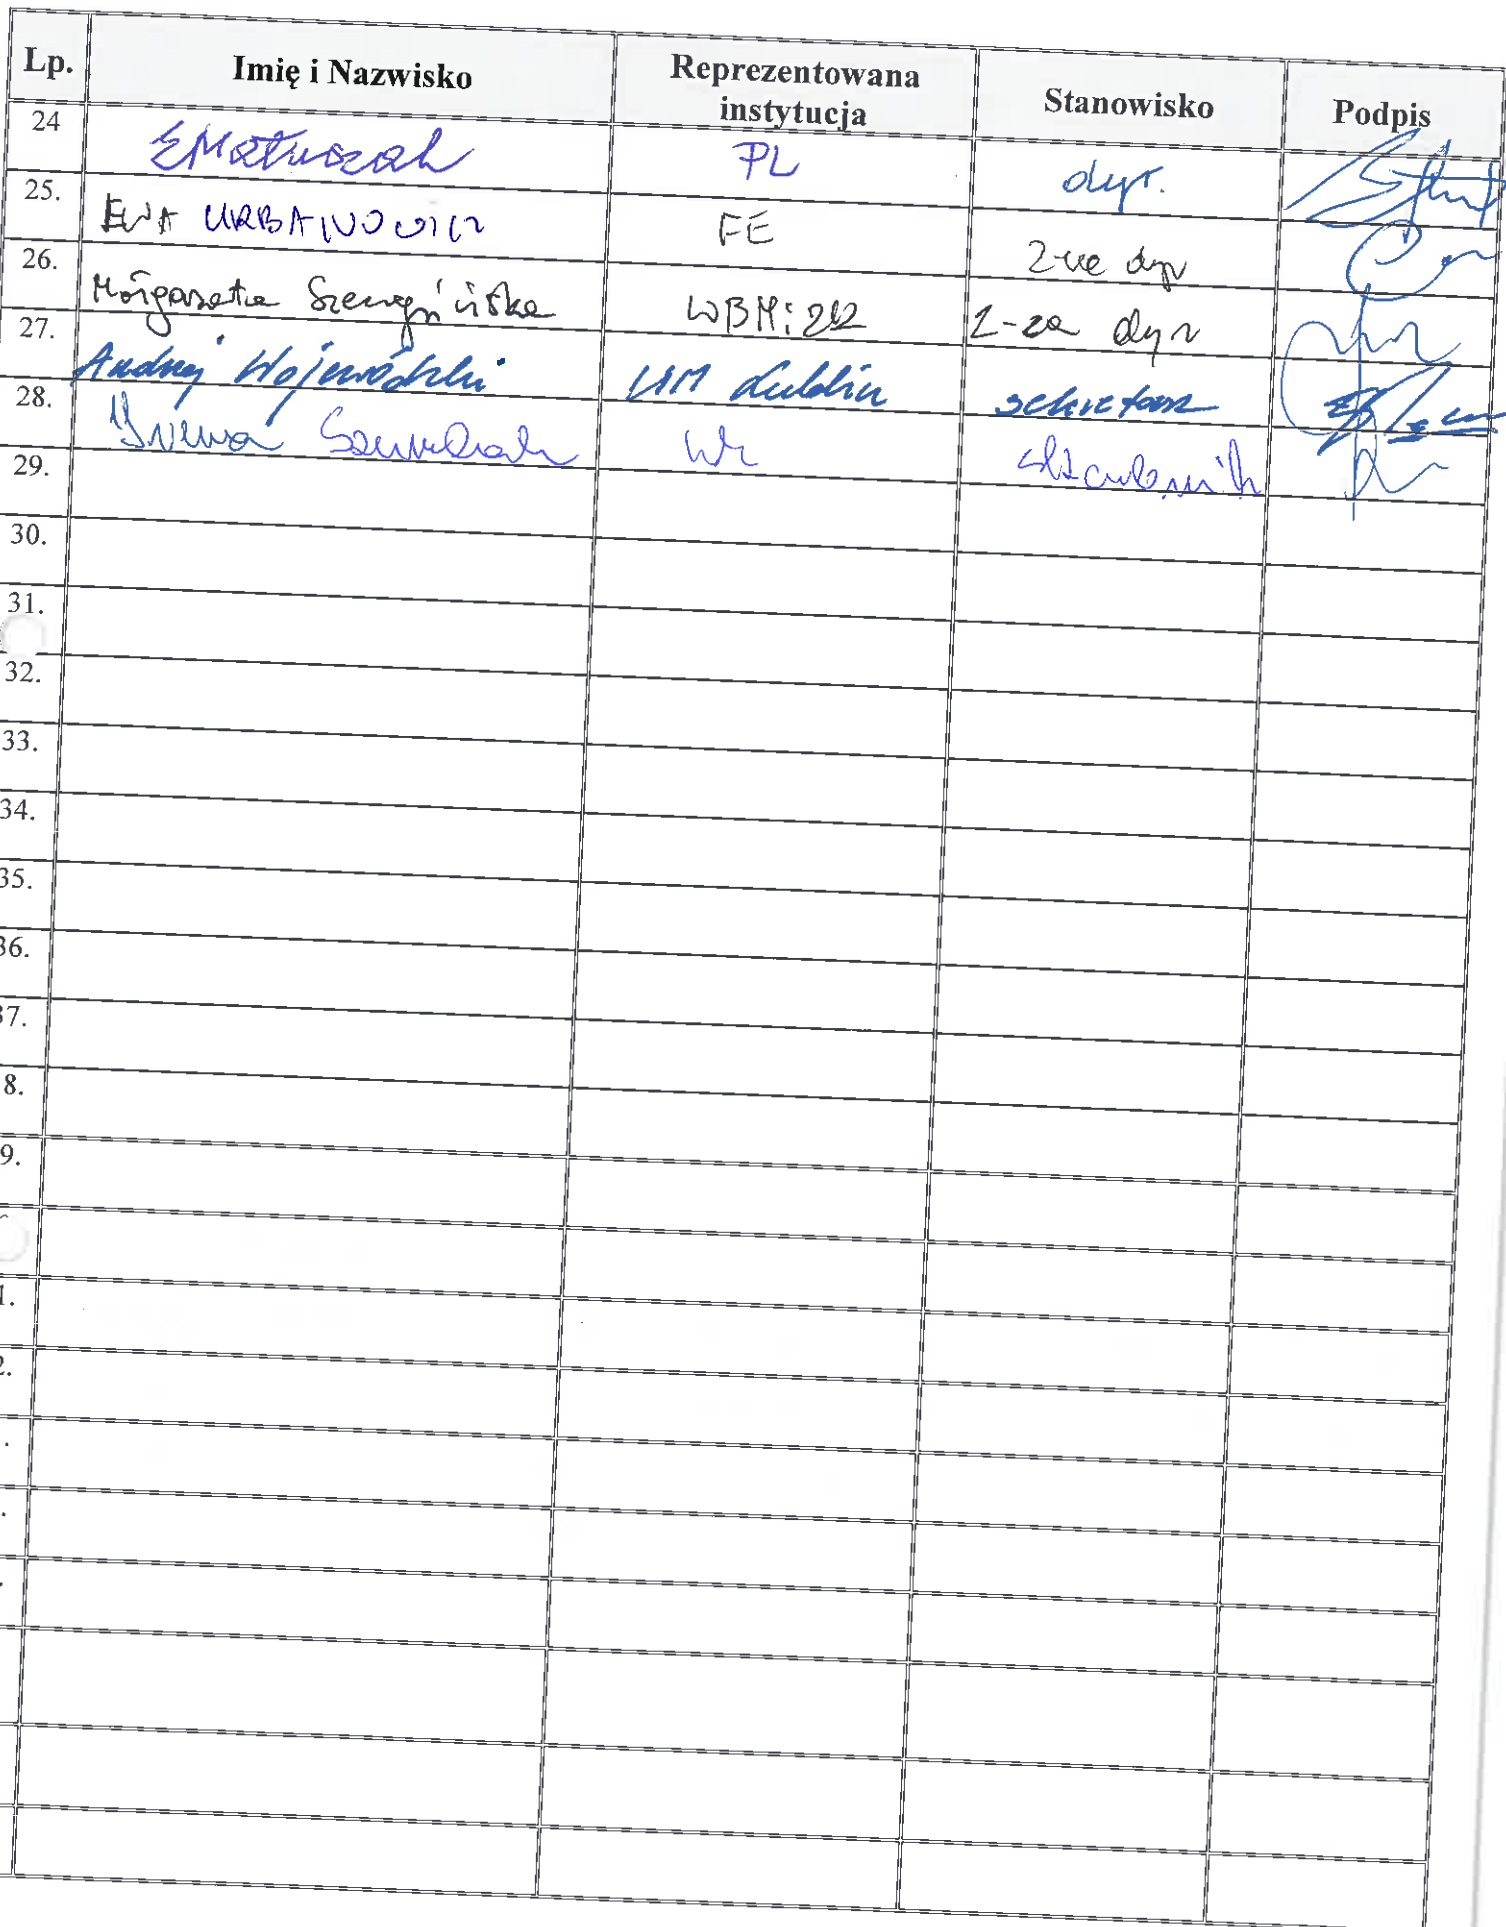 Lp. Imię i Nazwisko Reprezentowana instytucja Stanowisko Podpis
24 EMatuszak PL dyr.
25. EWA URBANOWICZ FE Z-ca dyr
26. Małgorzata WBMiZŻ Z-ca dyr
27. Andrzej Wojewódzki UM Lublin sekretarz
28.
29.
30.
31.
32.
33.
34.
35.
36.
37.
8.
9.
1.
2.